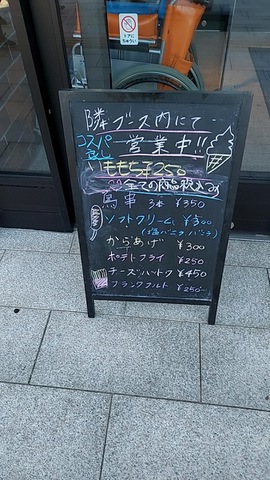 隣ブース内にて
コスパ良し
営業中!!
ももち 250
全ての商品税込です
鳥串 3本 ¥350
ソフトクリーム ¥300
(塩バニラ バニラ)
からあげ ¥300
ポテトフライ ¥250
チーズハットク ¥450
フランクフルト ¥250